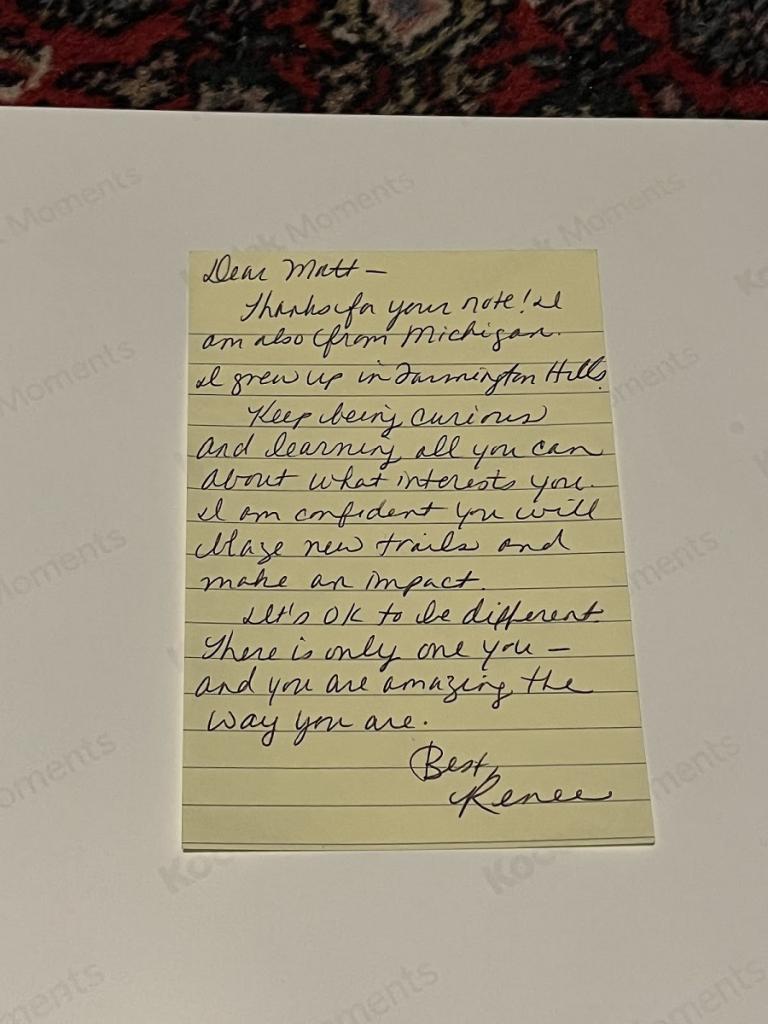 Dear Matt —
Thanks for your note! I
am also from Michigan.
I grew up in Farmington Hills.
Keep being curious
and learning all you can
about what interests you.
I am confident you will
blaze new trails and
make an impact.
It's OK to be different.
There is only one you —
and you are amazing the
way you are.
Best,
Renee
Kodak Moments